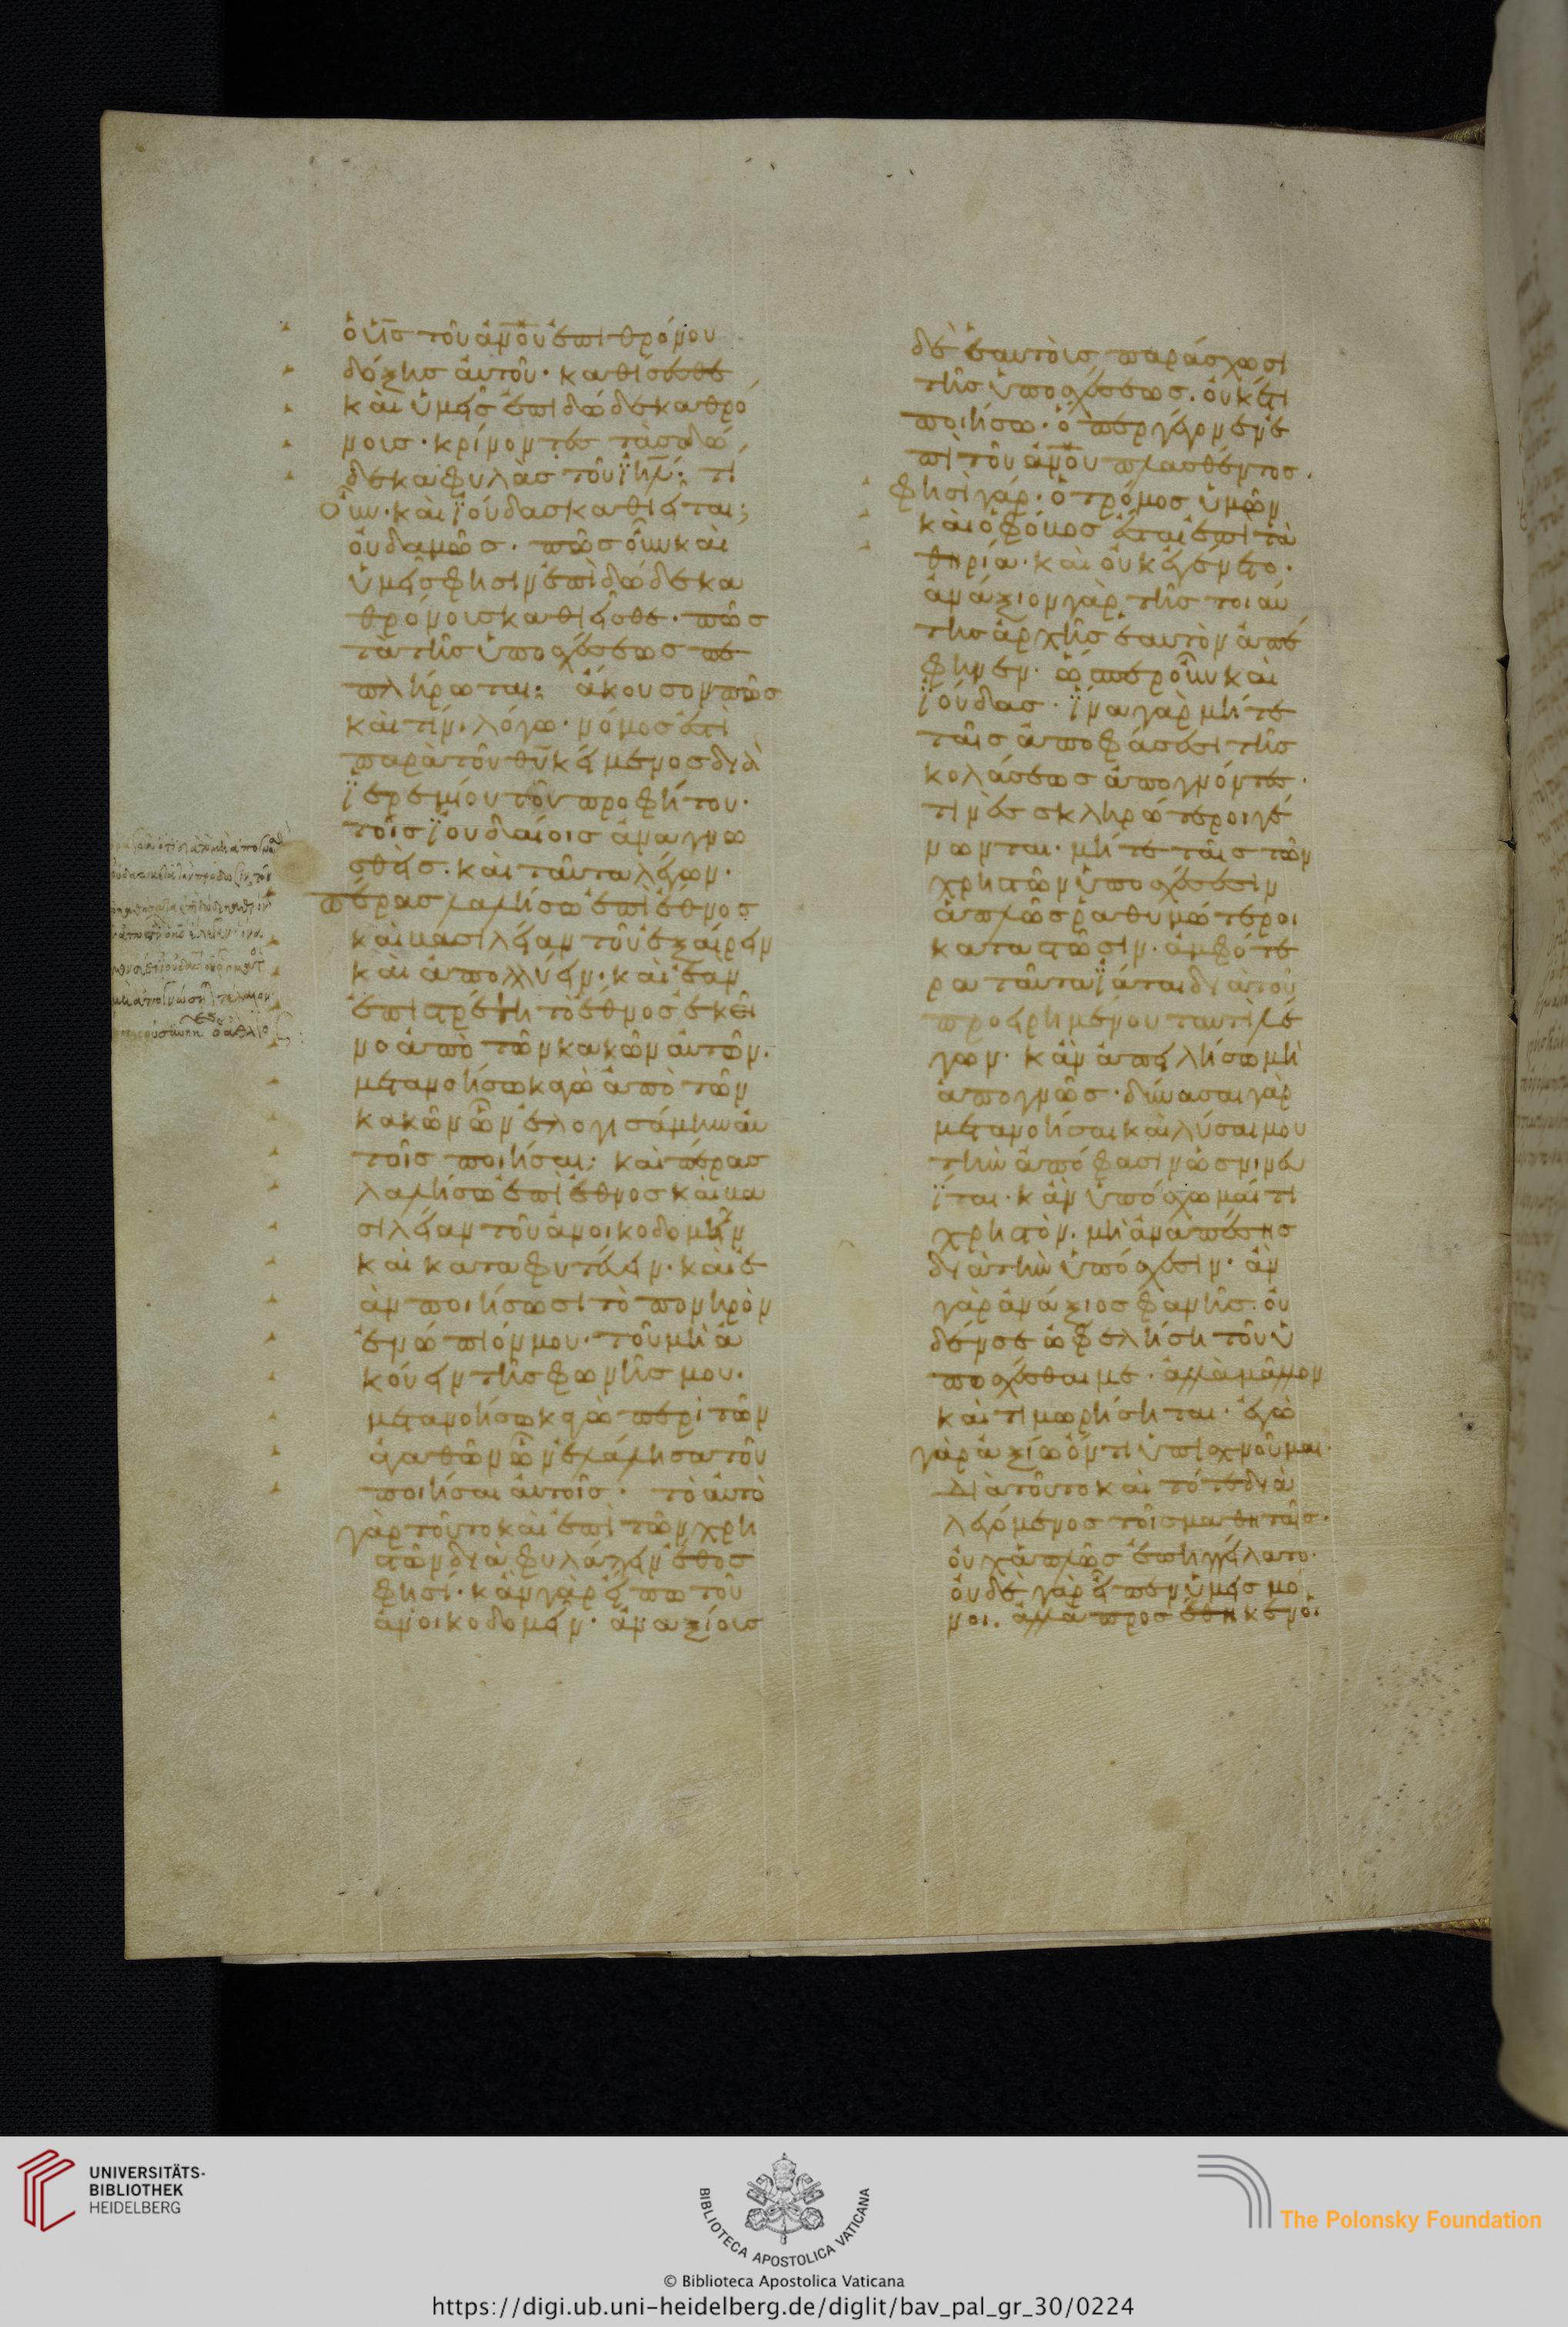 ὁ υἱ̅ς τοῦ ἀν̅ου ἐπὶ θρόνου
δόξης αὐτοῦ· καθίσεσθε
καὶ ὑμεῖς ἐπὶ δώδεκα θρό
νοις· κρίνοντες τὰς δώ
δεκα φυλὰς τοῦ ϊη̅λ· τί
οὖν· καὶ ϊούδας καθιεῖται;
οὐδαμῶς· πῶς οὖν καὶ
ὑμεῖς φησιν ἐπὶ δώδεκα
θρόνοις καθιεῖσθε· πῶς
τὰ τῆς ὑποσχέσεως πε
πλήρωται; ἄκουσον πῶς
καὶ τίνι λόγω· νόμος ἐστὶ
παρὰ τοῦ θυ̅ κείμενος διὰ
ϊερεμίου τοῦ προφήτου·
τοῖς ϊουδαίοις ἀναγνω
σθεὶς· καὶ ταῦτα λέγων·
πέρας λαλήσω ἐπὶ ἔθνος
καὶ βασιλείαν τοῦ ἐξαίρειν
καὶ ἀπολλύειν· καὶ ἐὰν
ἐπιστρέψη τὸ ἔθνος ἐκεῖ
νο ἀπὸ τῶν κακῶν αὐτῶν·
μετανοήσω κἀγὼ ἀπὸ τῶν
κακῶν ὧν ἐλογισάμην αὐ
τοῖς ποιῆσαι· καὶ πέρας
λαλήσω ἐπὶ ἔθνος καὶ βα
σιλείαν τοῦ ἀνοικοδομεῖν
καὶ καταφυτεύειν· καὶ ἐ
ὰν ποιήσωσι τὸ πονηρὸν
ἐνώπιόν μου· τοῦ μὴ ἀ
κούειν τῆς φωνῆς μου·
μετανοήσω κἀγὼ περὶ τῶν
ἀγαθῶν ὧν ἐλάλησα τοῦ
ποιῆσαι αὐτοῖς· τὸ αὐτὸ
γὰρ τοῦτο καὶ ἐπὶ τῶν χρη
στῶν διαφυλάττειν ἔθος
φησί· κἂν γὰρ εἴπω τοῦ
ἀνοικοδομεῖν· ἀναξίους
δὲ ἑαυτοὺς παράσχωσι
τῆς ὑποσχέσεως· οὐκέτι
ποιήσω· ὅπερ γέγονεν ἐ
πὶ τοῦ ἀν̅ου πλασθέντος·
φησὶ γάρ· ὁ τρόμος ὑμῶν
καὶ ὁ φόβος ἔσται ἐπὶ τὰ
θηρία· καὶ οὐκ ἐγένετο·
ἀνάξιον γὰρ τῆς τοιαύ
της ἀρχῆς ἑαυτὸν ἀπέ
φηνεν· ὥσπερ οὖν καὶ
ϊούδας· ϊνα γὰρ μήτε
ταῖς ἀποφάσεσι τῆς
κολάσεως ἀπογνόντες·
τινὲς σκληρότεροι γέ
νωνται· μήτε ταῖς τῶν
χρηστῶν ὑποσχέσεσιν
ἁπλῶς ῥαθυμότεροι
καταστῶσιν· ἀμφότε
ρα ταῦτα ϊᾶται διὰ τοῦ
προειρημένου ταυτὶ λέ
γων· κἂν ἀπειλήσω μὴ
ἀπογνῶς· δύνασαι γὰρ
μετανοῆσαι καὶ λῦσαί μου
τὴν ἀπόφασιν ὡς νινευ
ϊται· κἂν ὑπόσχωμαί τι
χρηστὸν· μὴ ἀναπέσης
διὰ τὴν ὑπόσχεσιν· ἂν
γὰρ ἀνάξιος φανῆς· οὐ
δέν σε ὠφελήσει τοῦ ὑ
ποσχέσθαι με· ἀλλὰ μᾶλλον
καὶ τιμωρήσηται· ἐγὼ
γὰρ ἀξίω ὄντι ὑπισχνοῦμαι·
διὰ τοῦτο καὶ τότε δια
λεγόμενος τοῖς μαθηταῖς·
οὐχ ἁπλῶς ἐπηγγείλατο·
οὐδὲ γὰρ εἶπεν ὑμεῖς μό
νοι· ἀλλὰ προσέθηκεν οἱ
UNIVERSITÄTS-
BIBLIOTHEK
HEIDELBERG
BIBLIOTECA APOSTOLICA VATICANA
The Polonsky Foundation
© Biblioteca Apostolica Vaticana
https://digi.ub.uni-heidelberg.de/diglit/bav_pal_gr_30/0224